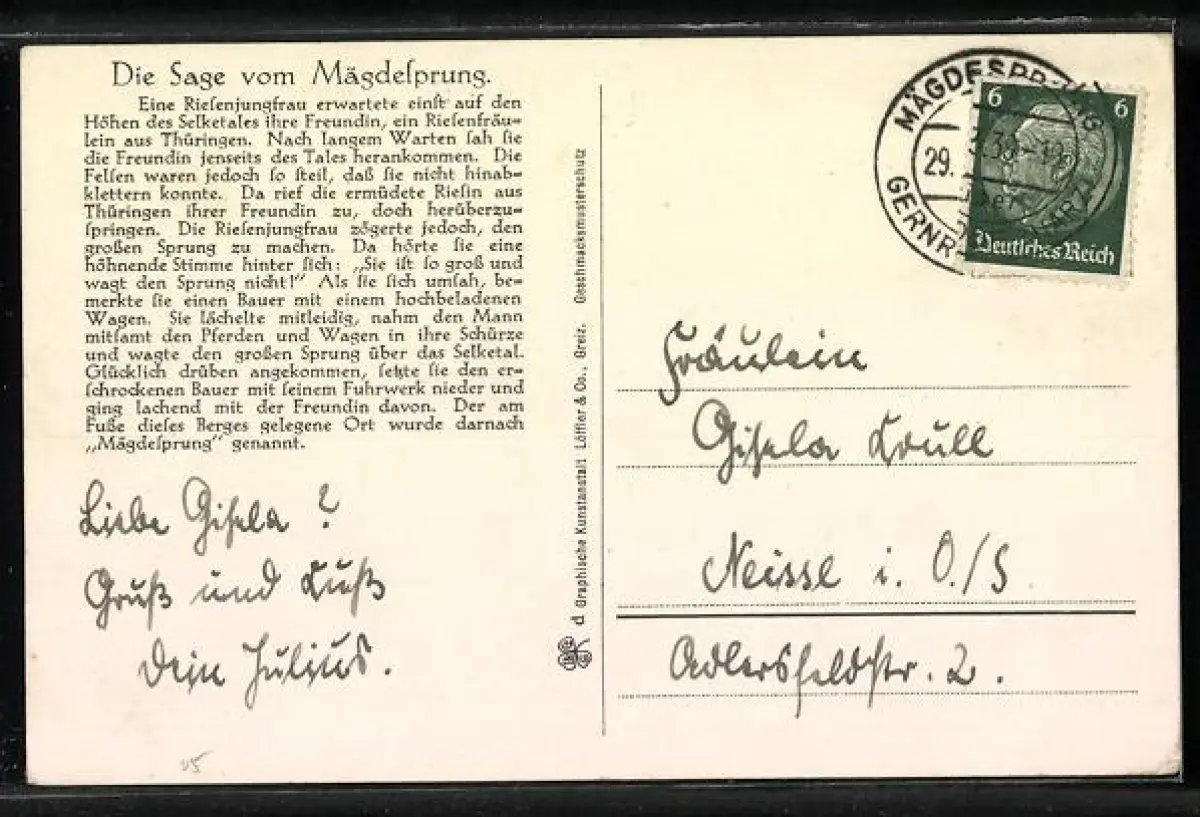 Die Sage vom Mägdeſprung.
Eine Rieſenjungfrau erwartete einſt auf den
Höhen des Selketales ihre Freundin, ein Rieſenfräu-
lein aus Thüringen. Nach langem Warten ſah ſie
die Freundin jenseits des Tales herankommen. Die
Felſen waren jedoch ſo ſteil, daß ſie nicht hinab-
klettern konnte. Da rief die ermüdete Rieſin aus
Thüringen ihrer Freundin zu, doch herüberzu-
ſpringen. Die Rieſenjungfrau zögerte jedoch, den
großen Sprung zu machen. Da hörte ſie eine
höhnende Stimme hinter ſich: „Sie iſt ſo groß und
wagt den Sprung nicht!“ Als ſie ſich umſah, be-
merkte ſie einen Bauer mit einem hochbeladenen
Wagen. Sie lächelte mitleidig, nahm den Mann
mitſamt den Pferden und Wagen in ihre Schürze
und wagte den großen Sprung über das Selketal.
Glücklich drüben angekommen, ſetzte ſie den er-
ſchrockenen Bauer mit ſeinem Fuhrwerk nieder und
ging lachend mit der Freundin davon. Der am
Fuße dieſes Berges gelegene Ort wurde darnach
„Mägdeſprung“ genannt.
Liebe Gisela ?
Gruß und Kuß
Dein Julius.
d Graphische Kunstanstalt Löffler & Co., Greiz. Geschmacksmusterschutz
MÄGDESPRUNG
29.
6 6
Deutſches Reich
Fräulein
Gisela Krull
Neisse i. O./S
Adlersfeldstr. 2.